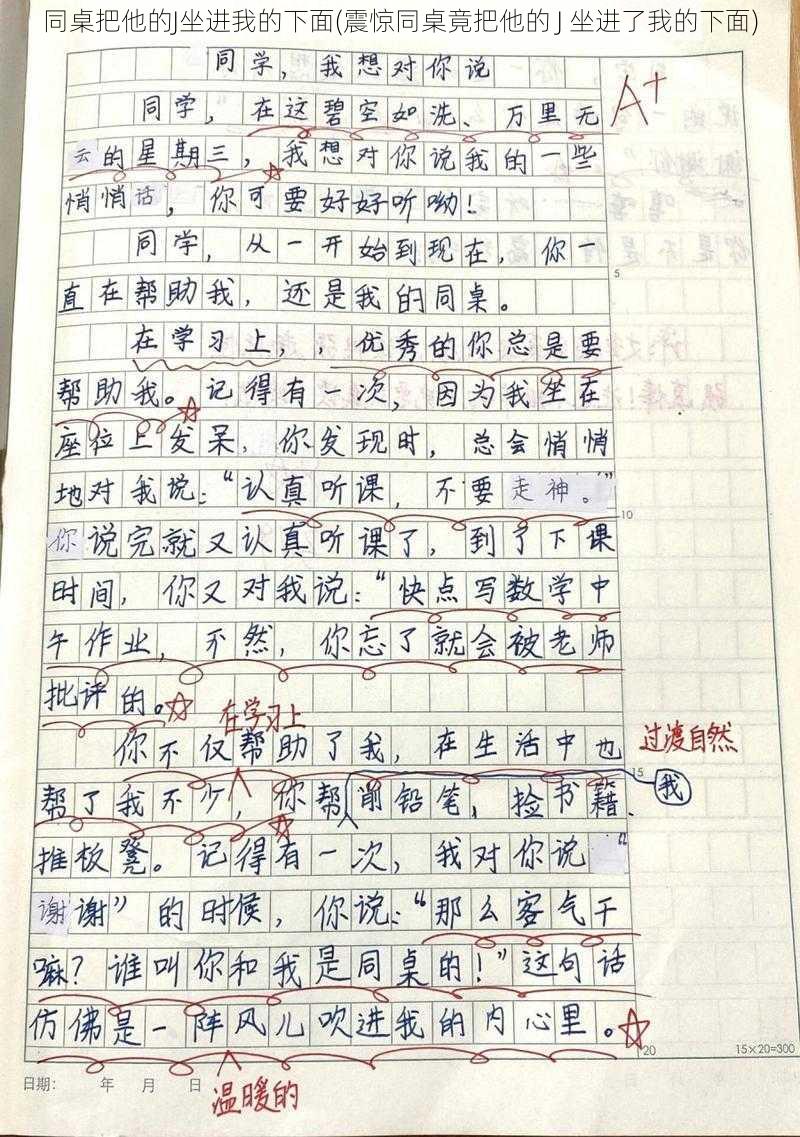 同桌把他的J坐进我的下面(震惊同桌竟把他的 J 坐进了我的下面)
同学，我想对你说
同学，在这碧空如洗、万里无
A+
云的星期三，我想对你说我的一些
悄悄话，你可要好好听呦！
同学，从一开始到现在，你一
5
直在帮助我，还是我的同桌。
在学习上，，优秀的你总是要
帮助我。记得有一次，因为我坐在
座位上发呆，你发现时，总会悄悄
地对我说：“认真听课，不要走神。”
10
你说完就又认真听课了，到了下课
时间，你又对我说：“快点写数学中
午作业，不然，你忘了就会被老师
批评的。
在学习上
你不仅帮助了我，在生活中也
过渡自然
15
帮了我不少，你帮削铅笔，捡书籍、
我
推板凳。记得有一次，我对你说“
谢谢”的时候，你说：“那么客气干
嘛？谁叫你和我是同桌的！”这句话
仿佛是一阵风儿吹进我的内心里。
20
15×20=300
日期： 年 月 日
温暖的